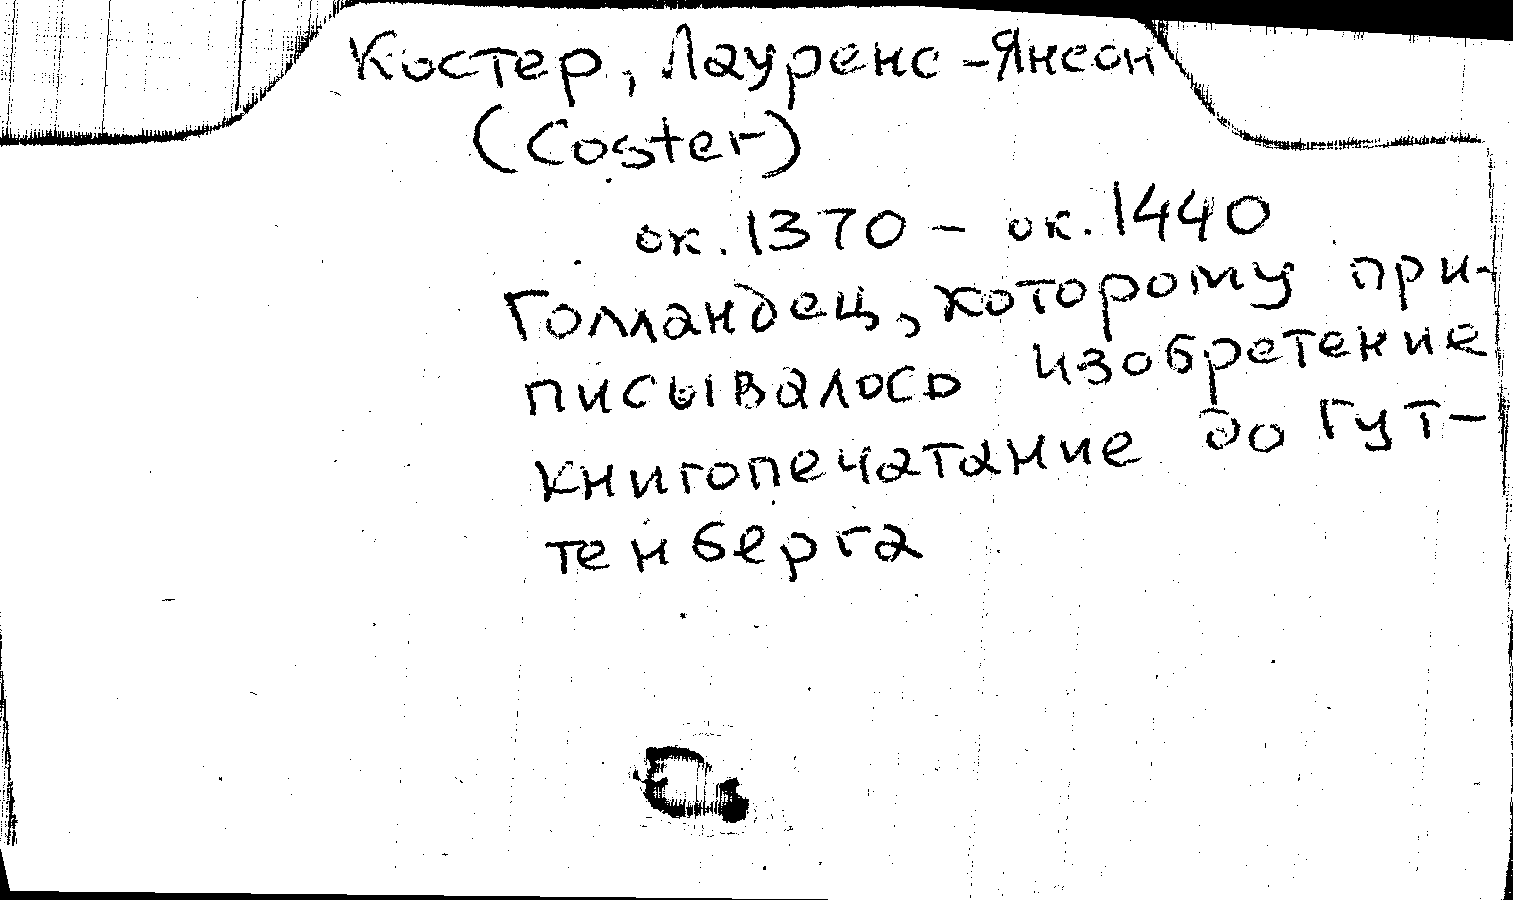 Костер, Лауренс-Янсон
(Coster)
ок. 1370 - ок. 1440
Голландец, которому при-
писывалось изобретение
книгопечатание до Гут-
тенберга